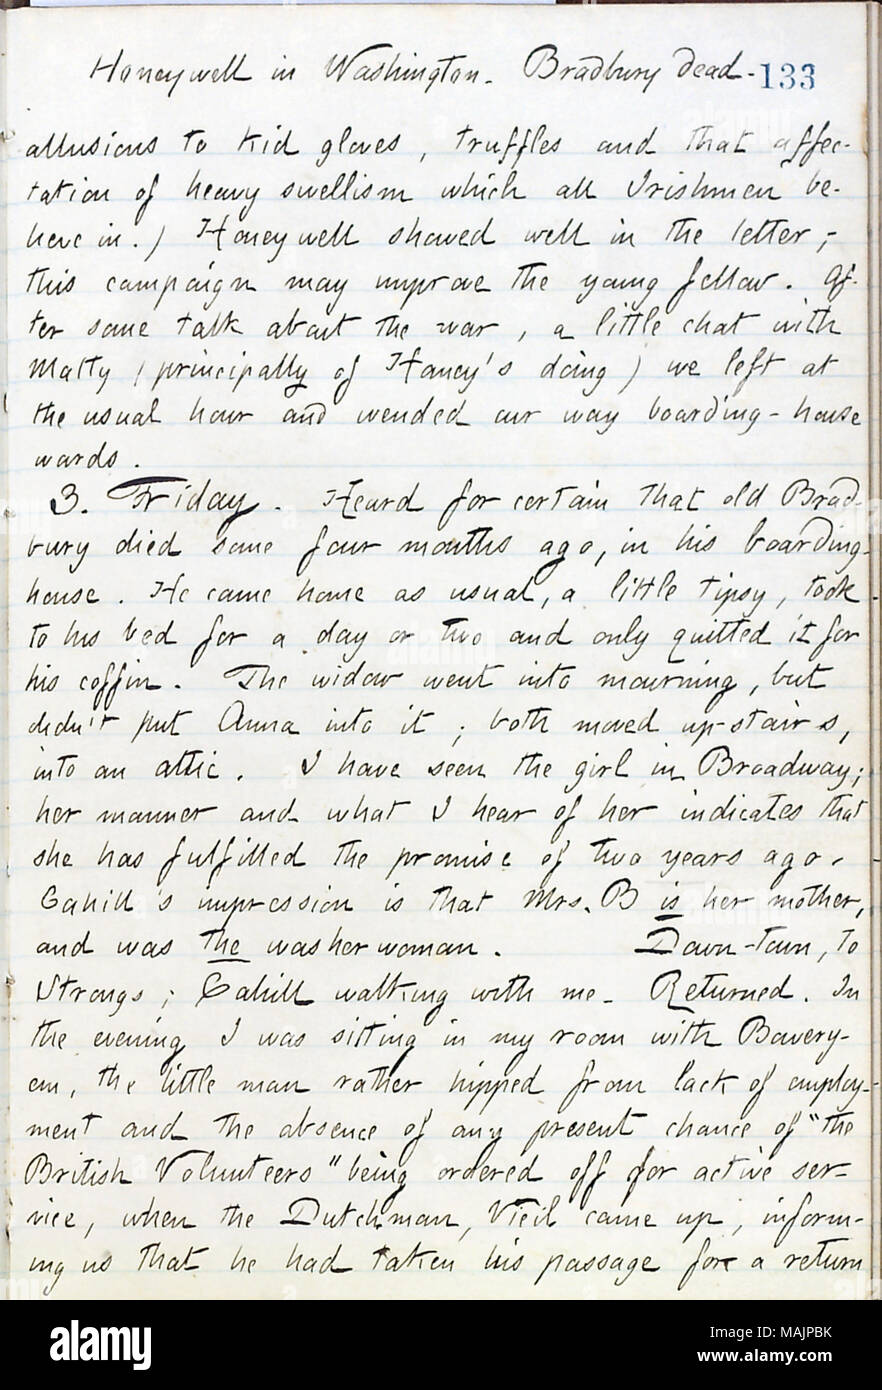 Honeywell in Washington. Bradbury dead. 133
allusions to kid gloves, truffles and that affec-
tation of heavy swellism which all Irishmen be-
lieve in.) Honeywell showed well in the letter;
this campaign may improve the young fellow. Af-
ter some talk about the war, a little chat with
Matty (principally of Haney's doing) we left at
the usual hour and wended our way boarding-house
wards.
3. Friday. Heard for certain that old Brad-
bury died some four months ago, in his boarding-
house. He came home as usual, a little tipsy, took
to his bed for a day or two and only quitted it for
his coffin. The widow went into mourning, but
didn't put Anna into it; both moved up-stairs,
into an attic. I have seen the girl in Broadway;
her manner and what I hear of her indicates that
she has fulfilled the promise of two years ago.
Cahill's impression is that Mrs. B is her mother,
and was the washerwoman. Down-town, to
Strongs; Cahill walking with me. Returned. In
the evening I was sitting in my room with Bowery-
em, the little man rather hipped from lack of employ-
ment and the absence of any present chance of "the
British Volunteers" being ordered off for active ser-
vice, when the Dutchman, Vieil came up, inform-
ing us that he had taken his passage for a return
alamy
Image ID: MAJPBK
www.alamy.com